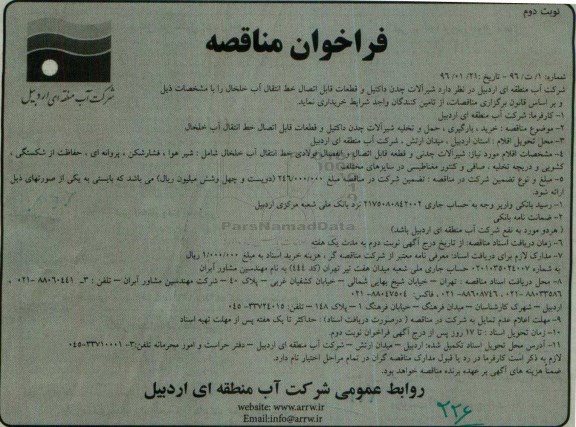 نوبت دوم
فراخوان مناقصه
شرکت آب منطقه ای اردبیل
شماره: ۱/ت/۹۶ - تاریخ: ۹۶/۰۱/۲۱
شرکت آب منطقه ای اردبیل در نظر دارد شیرآلات چدن داکتیل و قطعات قابل اتصال خط انتقال آب خلخال را با مشخصات ذیل
و بر اساس قانون برگزاری مناقصات، از تامین کنندگان واجد شرایط خریداری نماید.
۱- کارفرما: شرکت آب منطقه ای اردبیل
۲- موضوع مناقصه: خرید ، بارگیری ، حمل و تخلیه شیرآلات چدن داکتیل و قطعات قابل اتصال خط انتقال آب خلخال
۳- محل تحویل اقلام : استان اردبیل ، میدان ارتش ، شرکت آب منطقه ای اردبیل
۴- مشخصات اقلام مورد نیاز: شیرآلات چدنی و قطعه قابل اتصال فولادی خط انتقال آب خلخال شامل : شیر هوا ، فشارشکن ، پروانه ای ، حفاظت از شکستگی ،
کشویی و دریچه تخلیه ، صافی و کنتور مغناطیسی در سایزهای مختلف
۵- مبلغ و نوع تضمین شرکت در مناقصه : تضمین شرکت در مناقصه مبلغ ۲۴۶/۰۰۰/۰۰۰ (دویست و چهل وشش میلیون ریال) می باشد که بایستی به یکی از صورتهای ذیل
ارائه شود.
۱- رسید بانکی واریز وجه به حساب جاری ۲۱۷۵۰۸۰۸۴۲۰۰۲ نزد بانک ملی شعبه مرکزی اردبیل
۲- ضمانت نامه بانکی
( هردو مورد به نفع شرکت آب منطقه ای اردبیل باشد)
ParsNamadData
۶- زمان دریافت اسناد مناقصه: از تاریخ درج آگهی نوبت دوم به مدت یک هفته
۷- مدارک لازم برای دریافت اسناد: معرفی نامه معتبر از شرکت مناقصه گر ، هزینه خرید اسناد به مبلغ ۱/۰۰۰/۰۰۰ ریال
به شماره ۰۲۰۱۰۳۵۰۲۴۰۰۷ حساب جاری ملی شعبه میدان هفت تیر تهران (کد ۴۴۴) به نام مهندسین مشاور آبران
۸- محل دریافت اسناد مناقصه : تهران – خیابان شیخ بهایی شمالی – خیابان کشفیان غربی – پلاک ۴۰ – شرکت مهندسین مشاور آبران – تلفن : ۳- ۸۸۰۶۰۴۴۱ -۰۲۱ ،
۸۸۰۳۳۵۸۶ -۰۲۱ ، ۸۸۶۰۸۷۴۶ -۰۲۱ ، فاکس: ۸۸۰۴۷۵۰۴ -۰۲۱
اردبیل – شهرک کارشناسان – میدان فرهنگ – خیابان فرهنگ ۱ – پلاک ۱۴۸ – تلفن: ۳۳۷۲۴۰۱۵ -۰۴۵
۹- مهلت اعلام عدم تمایل به شرکت در مناقصه ( درصورت دریافت اسناد) : حداکثر تا یک هفته پس از مهلت تهیه اسناد
۱۰- زمان تحویل اسناد : تا ۱۷ روز پس از درج آگهی فراخوان نوبت دوم.
۱۱- آدرس محل تحویل اسناد تکمیل شده: اردبیل – میدان ارتش – شرکت آب منطقه ای اردبیل – دفتر حراست و امور محرمانه تلفن:۳- ۳۳۷۱۰۰۰۱ -۰۴۵
لازم به ذکر است کارفرما در رد یا قبول مدارک مناقصه گران در تمام مراحل اختیار تام دارد.
ضمنا هزینه های آگهی بر عهده برنده مناقصه خواهد بود.
روابط عمومی شرکت آب منطقه ای اردبیل
website: www.arrw.ir
Email:info@arrw.ir
۲۲۶